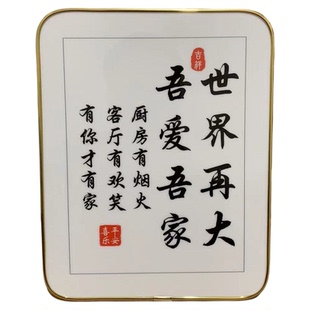 吉祥
世界再大
吾爱吾家
厨房有烟火
客厅有欢笑
有你才有家
平安
喜乐